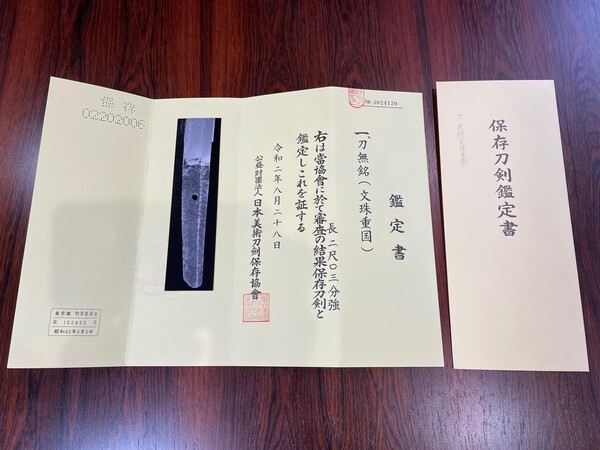 № 3024120
鑑定書
一、刀無銘(文珠重国)
長 二尺〇三分強
右は當協會に於て審査の結果保存刀剣と
鑑定しこれを証する
令和二年八月二十八日
公益財團法人 日本美術刀剣保存協會
保存
02202006
東京都 教育委員会
昭和45年3月5日
保存刀剣鑑定書